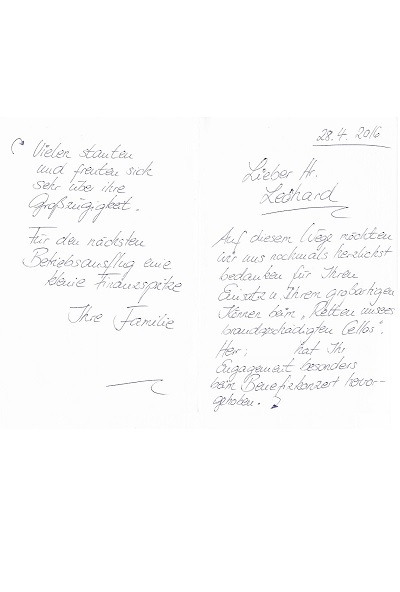 28.4.2016
Lieber Hr.
Auf diesem Wege möchten
wir uns nochmals herzlichst
bedanken für Ihren
Einsatz u. Ihrem großartigen
Können beim „Retten unseres
brandgeschädigten Cellos".
Herr hat Ihr
Engagement besonders
beim Benefizkonzert hervor-
gehoben.
Vielen staunten
und freuten sich
sehr über ihre
Großzügigkeit.
Für den nächsten
Betriebsausflug eine
kleine Finanzspritze
Ihre Familie